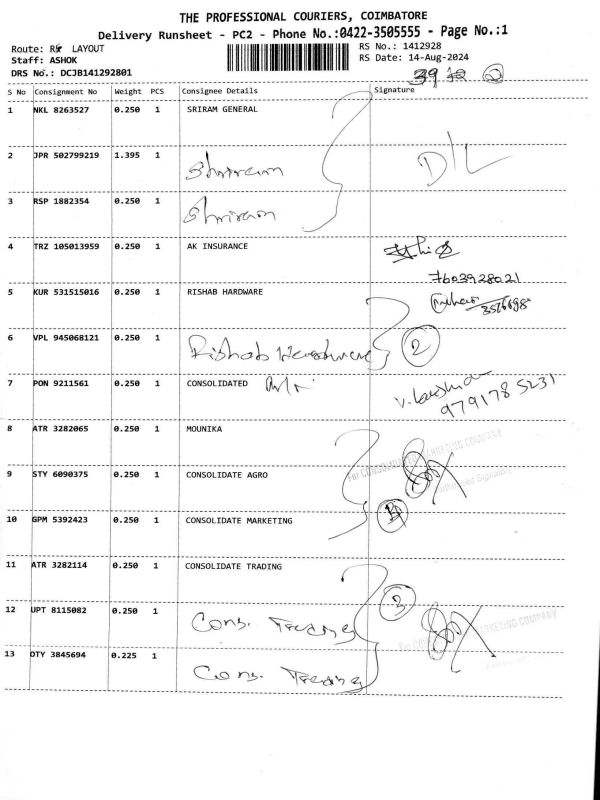 THE PROFESSIONAL COURIERS, COIMBATORE
Delivery Runsheet - PC2 - Phone No.:0422-3505555 - Page No.:1
Route: LAYOUT
RS No.: 1412928
Staff: ASHOK
RS Date: 14-Aug-2024
DRS No.: DCJB141292801
39 2
S No Consignment No Weight PCS Consignee Details Signature
1 NKL 8263527 0.250 1 SRIRAM GENERAL
2 JPR 502799219 1.395 1 Shriram D/L
3 RSP 1882354 0.250 1 Shriram
4 TRZ 105013959 0.250 1 AK INSURANCE
7603928021
5 KUR 531515016 0.250 1 RISHAB HARDWARE
3576698
6 VPL 945068121 0.250 1 Rishab Hardware 2
7 PON 9211561 0.250 1 CONSOLIDATED
9791785231
8 ATR 3282065 0.250 1 MOUNIKA
For CONSOLIDATED MARKETING COMPANY
9 STY 6090375 0.250 1 CONSOLIDATE AGRO
Authorised Signatory
10 GPM 5392423 0.250 1 CONSOLIDATE MARKETING
11 ATR 3282114 0.250 1 CONSOLIDATE TRADING
12 UPT 8115082 0.250 1 Cons. Trading 3
MARKETING COMPANY
13 OTY 3845694 0.225 1 Cons. Trading